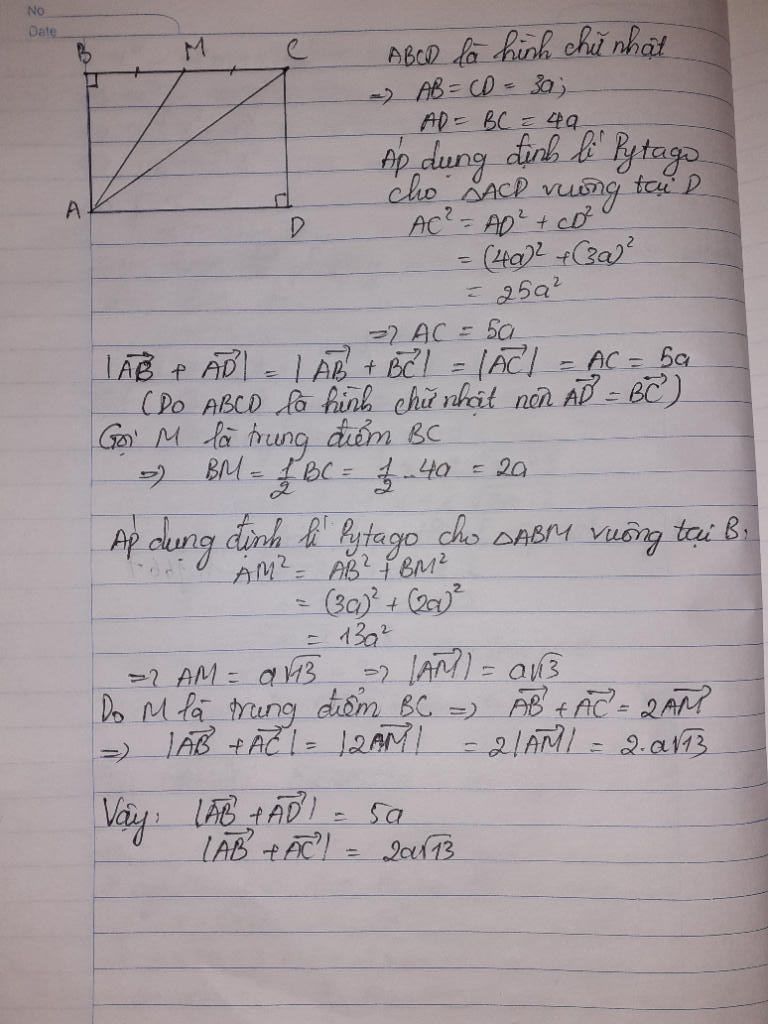 No
Date
B M C
A D
ABCD là hình chữ nhật
=> AB = CD = 3a;
AD = BC = 4a
Áp dụng định lí Pytago
cho △ACD vuông tại D
AC² = AD² + CD²
= (4a)² + (3a)²
= 25a²
=> AC = 5a
|AB⃗ + AD⃗| = |AB⃗ + BC⃗| = |AC⃗| = AC = 5a
(Do ABCD là hình chữ nhật nên AD⃗ = BC⃗)
Gọi M là trung điểm BC
=> BM = 1/2 BC = 1/2 . 4a = 2a
Áp dụng định lí Pytago cho △ABM vuông tại B:
AM² = AB² + BM²
= (3a)² + (2a)²
= 13a²
=> AM = a√13 => |AM⃗| = a√13
Do M là trung điểm BC => AB⃗ + AC⃗ = 2AM⃗
=> |AB⃗ + AC⃗| = |2AM⃗| = 2|AM⃗| = 2.a√13
Vậy: |AB⃗ + AD⃗| = 5a
|AB⃗ + AC⃗| = 2a√13